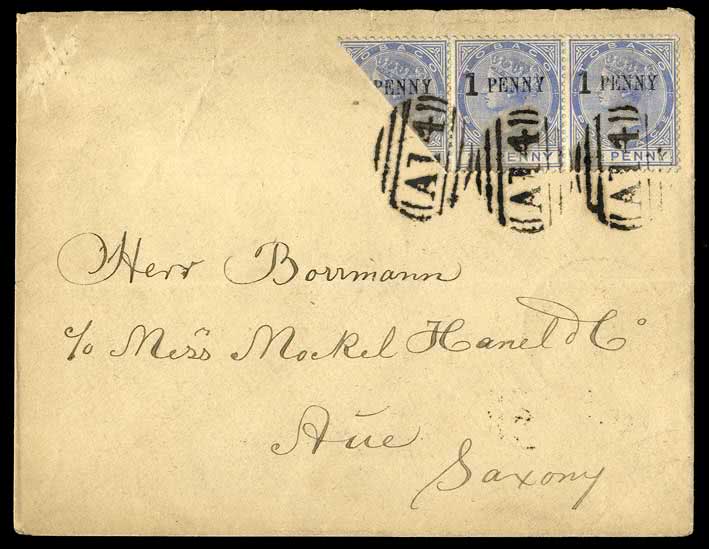 TOBAGO TOBAGO
PENNY 1 PENNY 1 PENNY
PENNY PENNY
A14 A14 A14
Herr Borrmann
c/o Mess Mockel Hanel & Co
Aue
Saxony